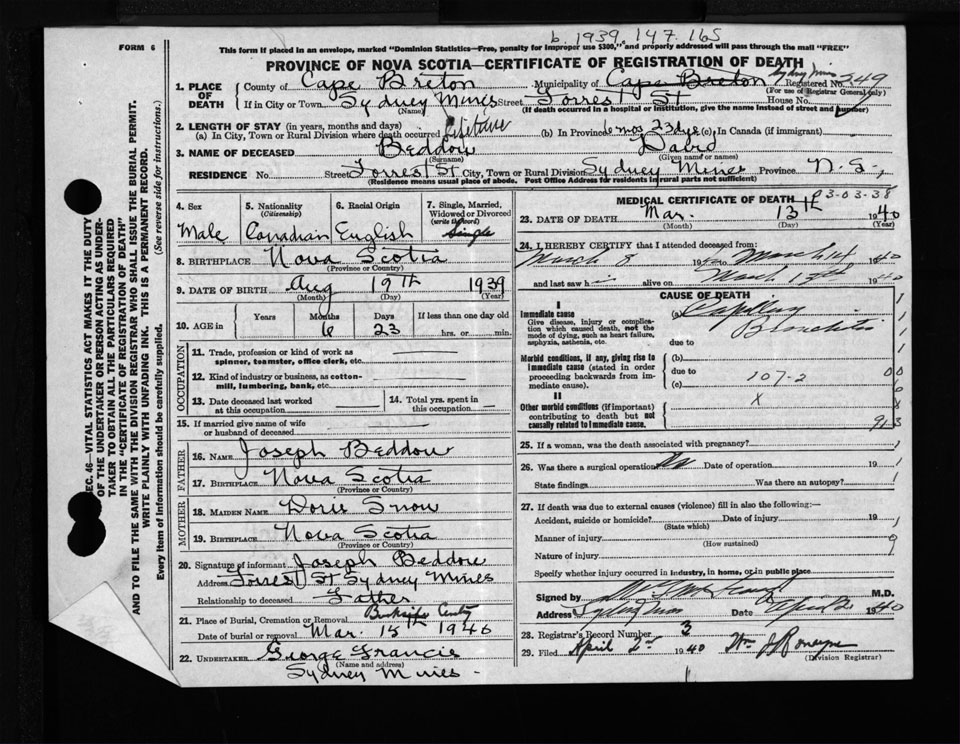 b. 1939. 147. 165
FORM 6
This form if placed in an envelope, marked "Dominion Statistics—Free, penalty for improper use $300," and properly addressed will pass through the mail "FREE"
PROVINCE OF NOVA SCOTIA—CERTIFICATE OF REGISTRATION OF DEATH
1. PLACE OF DEATH
County of Cape Breton Municipality of Cape Breton Sydney Mines Registered No. 349
(For use of Registrar General only)
If in City or Town Sydney Mines Street Forrest St House No.
(Name) (If death occurred in a hospital or institution, give the name instead of street and number)
2. LENGTH OF STAY (in years, months and days)
(a) In City, Town or Rural Division where death occurred Lifetime (b) In Province 6 mos 23 dys (c) In Canada (if immigrant)
3. NAME OF DECEASED Beddow David
(Surname) (Given name or names)
RESIDENCE No. Street Forrest St City, Town or Rural Division Sydney Mines Province N.S.,
(Residence means usual place of abode. Post Office Address for residents in rural parts not sufficient)
4. Sex Male
5. Nationality (Citizenship) Canadian
6. Racial Origin English
7. Single, Married, Widowed or Divorced (write the word) Single
8. BIRTHPLACE Nova Scotia
(Province or Country)
9. DATE OF BIRTH Aug 19th 1939
(Month) (Day) (Year)
10. AGE in Years Months Days If less than one day old
6 23 hrs. or min.
OCCUPATION
11. Trade, profession or kind of work as spinner, teamster, office clerk, etc.
12. Kind of industry or business, as cotton-mill, lumbering, bank, etc.
13. Date deceased last worked at this occupation
14. Total yrs. spent in this occupation
15. If married give name of wife or husband of deceased
FATHER
16. NAME Joseph Beddow
17. BIRTHPLACE Nova Scotia
(Province or Country)
MOTHER
18. MAIDEN NAME Doris Snow
19. BIRTHPLACE Nova Scotia
(Province or Country)
20. Signature of informant Joseph Beddow
Address Forrest St Sydney Mines
Relationship to deceased Father
21. Place of Burial, Cremation or Removal
Date of burial or removal Mar. 15th 1940
22. UNDERTAKER George Francis
(Name and address)
Sydney Mines
MEDICAL CERTIFICATE OF DEATH
03-03-38
23. DATE OF DEATH Mar. 13th 1940
(Month) (Day) (Year)
24. I HEREBY CERTIFY that I attended deceased from:
March 8 1940 to March 14 1940
and last saw h i alive on March 13th 1940
CAUSE OF DEATH
I
Immediate cause
Give disease, injury or complication which caused death, not the mode of dying, such as heart failure, asphyxia, asthenia, etc.
(a) Capillary Bronchitis
due to
Morbid conditions, if any, giving rise to immediate cause (stated in order proceeding backwards from immediate cause).
(b)
due to
(c) 107-2
II
Other morbid conditions (if important) contributing to death but not causally related to immediate cause.
X
25. If a woman, was the death associated with pregnancy?
26. Was there a surgical operation No Date of operation 19
State findings Was there an autopsy?
27. If death was due to external causes (violence) fill in also the following:—
Accident, suicide or homicide? Date of injury 19
(State which)
Manner of injury
(How sustained)
Nature of injury
Specify whether injury occurred in industry, in home, or in public place
Signed by M.D.
Address Sydney Mines Date April 2 1940
28. Registrar's Record Number 3
29. Filed April 2nd 1940 Wm J Romayne
(Division Registrar)
SEC. 46—VITAL STATISTICS ACT MAKES IT THE DUTY
OF THE UNDERTAKER OR PERSON ACTING AS UNDERTAKER TO OBTAIN ALL THE PARTICULARS REQUIRED
IN THE "CERTIFICATE OF REGISTRATION OF DEATH"
AND TO FILE THE SAME WITH THE DIVISION REGISTRAR WHO SHALL ISSUE THE BURIAL PERMIT.
WRITE PLAINLY WITH UNFADING INK. THIS IS A PERMANENT RECORD.
Every item of information should be carefully supplied. (See reverse side for instructions.)